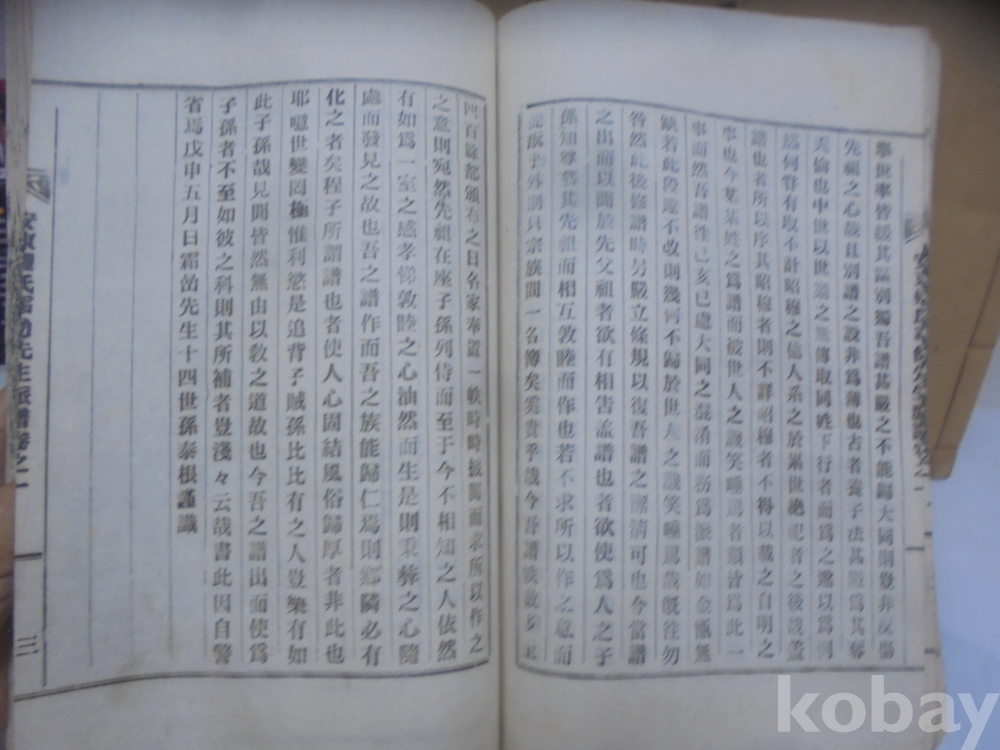 擧世率皆緩其區別獨吾譜甚嚴之不能歸大同則豈非反傷
先祖之心哉且別譜之說非爲薄也古者養子法甚嚴爲其奪
天倫也中世以世
無傳取同姓下行者而爲之
以爲例
然何嘗有取不計昭穆之他人系之於累世絶祀者之後哉蓋
譜也者所以序其昭穆者則不詳昭穆者不得以載之自明之
事也今某某姓之爲譜而被世人之譏笑唾罵者類皆爲此一
事而然吾譜徃己亥已處大同之混淆而
爲派譜如金甌無
缺若此段遂不改則幾何不歸於世人之譏笑唾罵哉旣往勿
咎然此後修譜時另嚴立條規以復吾譜之
淸可也今當譜
之出而以聞於先父祖者欲有相告盖譜也者欲使爲人之子
孫知尊
其先祖而相互敦睦而作也若不求所以作之意而
外別具宗族間一名簿矣奚貴乎哉今吾譜
四百餘部頒布之日名家奉置一帙時時披閱而求所以作之
之意則宛然先祖在座子孫列侍而至于今不相知之人依然
有如爲一室之感孝悌敦睦之心油然而生是則秉彝之心隨
處而發見之故也吾之譜作而吾之族能歸仁焉則鄕隣必有
化之者矣程子所謂譜也者使人心固結風俗歸厚者非此也
耶噫世變罔極惟利慾是追背子賊孫比比有之人豈樂有如
此子孫哉見聞皆然無由以敎之道故也今吾之譜出而使爲
子孫者不至如彼之科則其所補者豈淺々云哉書此因自警
省焉戊申五月日霜嵒先生十四世孫泰根謹識
先生派譜卷之一
三
kobay